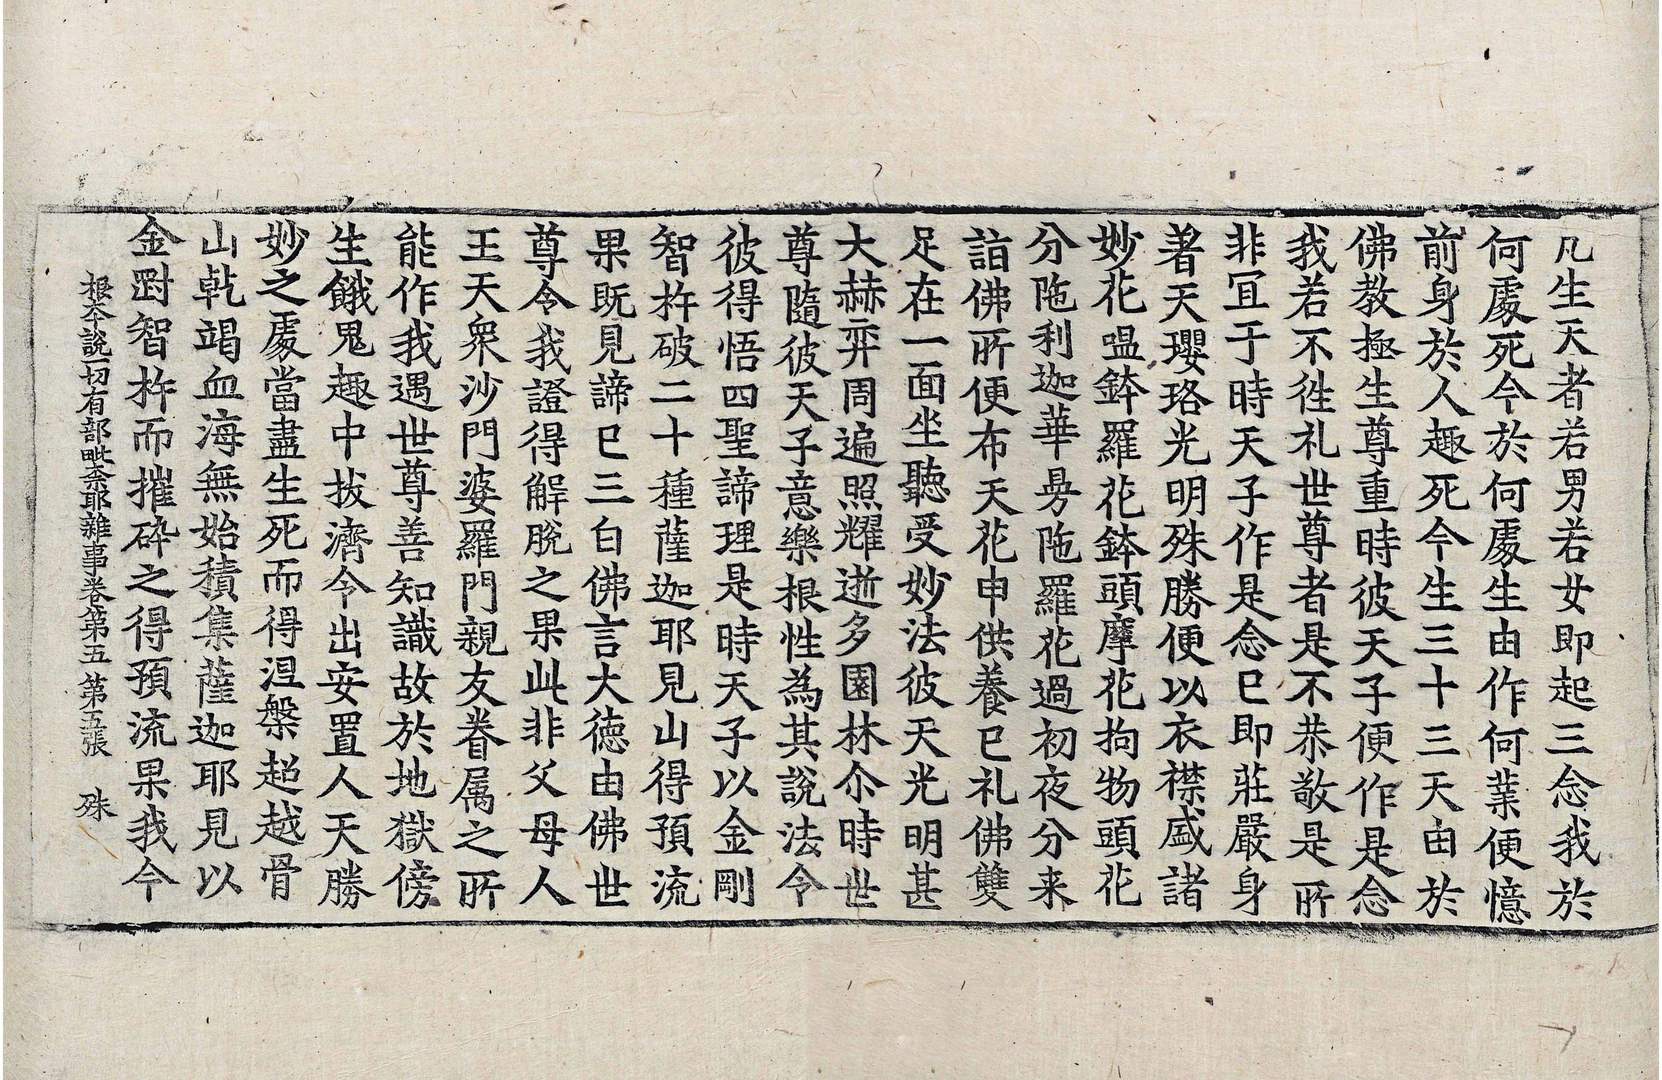 凡生天者若男若女即起三念我於
何處死今於何處生由作何業便憶
前身於人趣死今生三十三天由於
佛教極生尊重時彼天子便作是念
我若不徃礼世尊者是不恭敬是所
非冝于時天子作是念已即莊嚴身
著天瓔珞光明殊勝便以衣襟盛諸
妙花嗢鉢羅花鉢頭摩花拘物頭花
分陁利迦華曼陁羅花過初夜分来
詣佛所便布天花申供養已礼佛雙
足在一面坐聽受妙法彼天光明甚
大赫弈周遍照耀逝多園林尒時世
尊隨彼天子意樂根性為其說法令
彼得悟四聖諦理是時天子以金剛
智杵破二十種薩迦耶見山得預流
果既見諦已三白佛言大德由佛世
尊令我證得解脫之果此非父母人
王天衆沙門婆羅門親友眷属之所
能作我遇世尊善知識故於地獄傍
生餓鬼趣中拔濟令出安置人天勝
妙之處當盡生死而得涅槃超越骨
山乹竭血海無始積集薩迦耶見以
金剛智杵而摧碎之得預流果我今
根本說一切有部毗柰耶雜事卷第五 第五張 殊